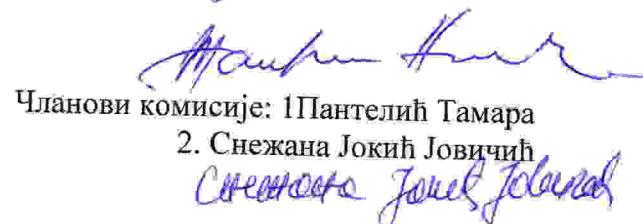 Чланови комисије: 1Пантелић Тамара
2. Снежана Јокић Јовичић
Снежана Јокић Јовичић